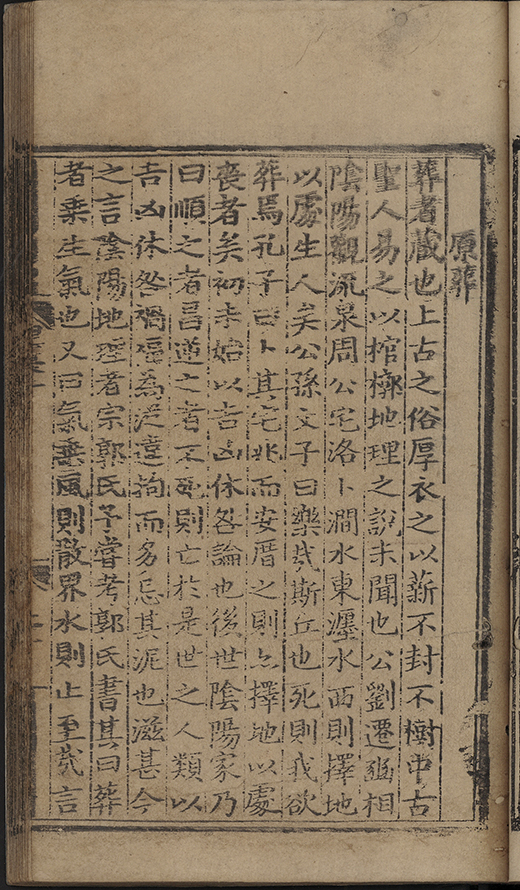 原葬
葬者藏也上古之俗厚衣之以薪不封不樹中古
聖人易之以棺槨地理之說未聞也公劉遷豳相
陰陽觀流泉周公宅洛卜澗水東瀍水西則擇地
以處生人矣公孫文子曰樂哉斯丘也死則我欲
葬焉孔子曰卜其宅兆而安厝之則亦擇地以處
喪者矣初未始以吉凶休咎論也後世陰陽家乃
曰順之者昌逆之者不死則亡於是世之人類以
吉凶休咎禍福為從違拘而多忌其泥也滋甚今
之言陰陽地理者宗郭氏予嘗考郭氏書其曰葬
者乘生氣也又曰氣乘風則散界水則止至哉言